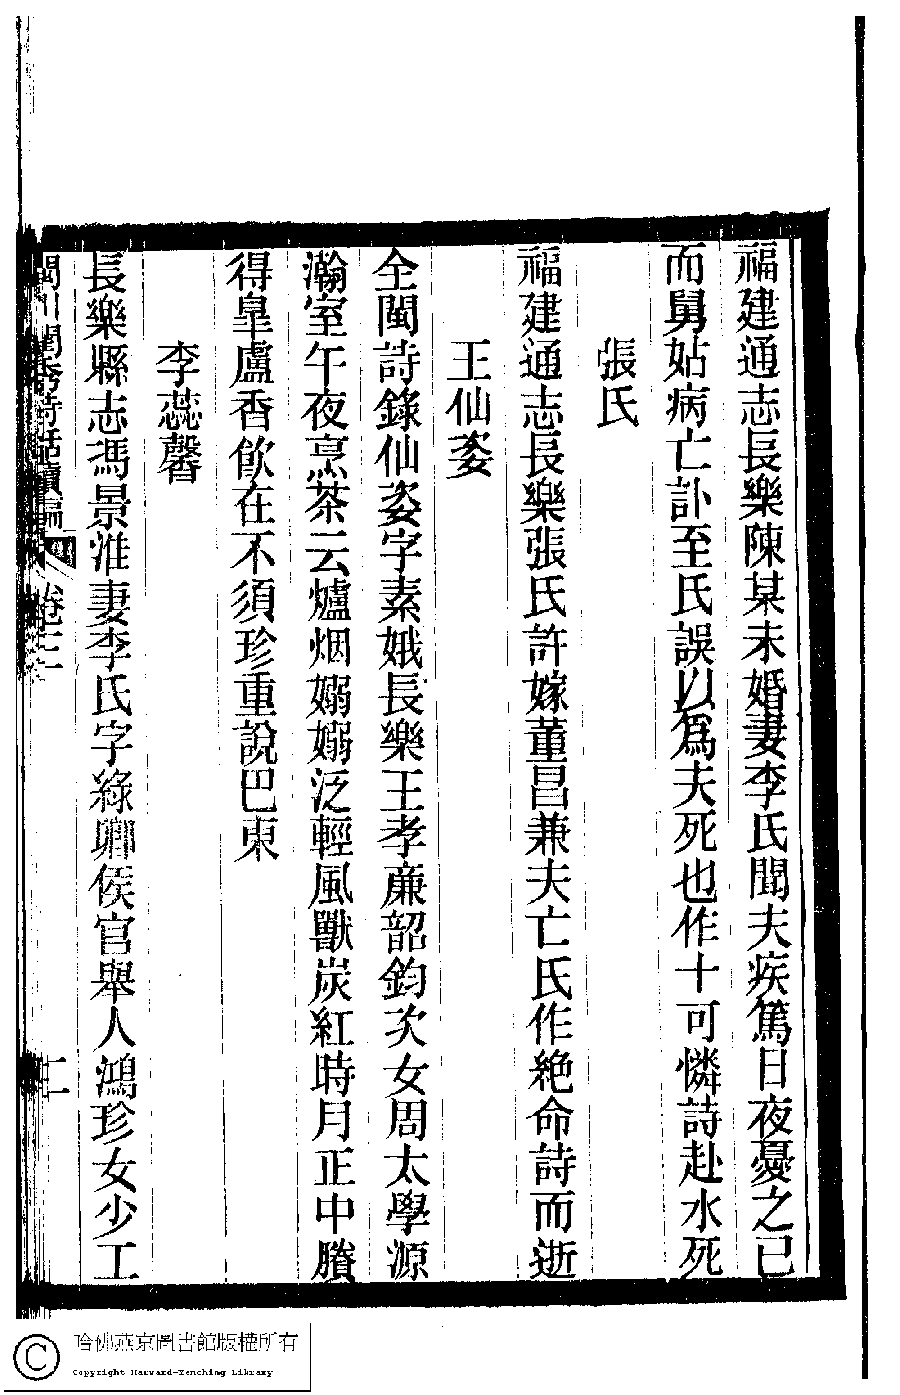 福建通志長樂陳某未婚妻李氏聞夫疾篤日夜憂之已
而舅姑病亡訃至氏誤以爲夫死也作十可憐詩赴水死
張氏
福建通志長樂張氏許嫁董昌兼夫亡氏作絶命詩而逝
王仙姿
全閩詩錄仙姿字素娥長樂王孝廉韶鈞次女周太學源
瀚室午夜烹茶云爐烟嫋嫋泛輕風獸炭紅時月正中賸
得皐盧香飮在不須珍重說巴東
李蕊馨
長樂縣志馮景淮妻李氏字綠卿侯官舉人鴻珍女少工
閩川閨秀詩話續編 卷三 二
哈佛燕京圖書館版權所有
Copyright Harvard-Yenching Library